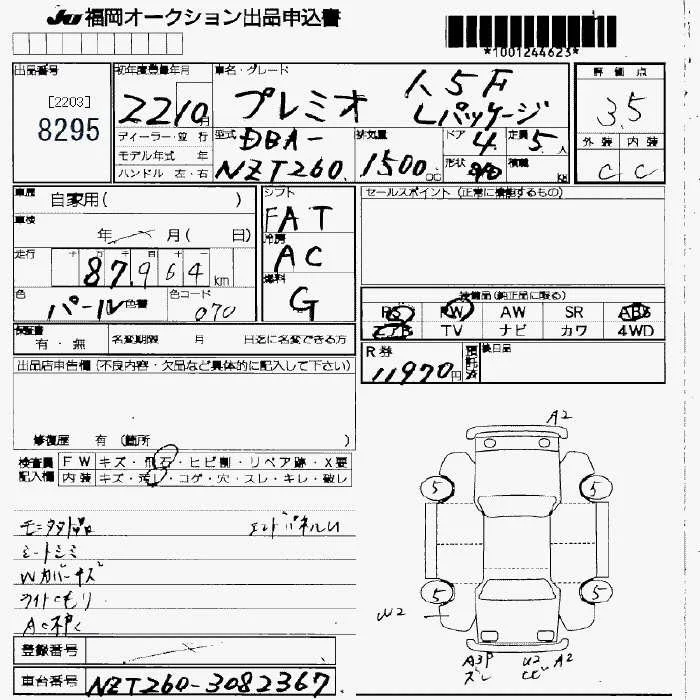 JU 福岡オークション出品申込書
*1001244623*
出品番号
[2203]
8295
初年度登録年月
22 10月
車名・グレード
プレミオ 1.5F
Lパッケージ
評価点
3.5
ディーラー・並 行
モデル年式 年
ハンドル 左・右
型式
DBA-
NZT260
排気量
1500 cc
ドア
4
形状
定員
5人
積載
kg
外装 内装
C C
車歴
自家用( )
車検
年 月( 日)
走行
87,964 km
色
パール 色替
色コード
070
シフト
FAT
冷房
AC
燃料
G
セールスポイント(正常に機能するもの)
装備品(純正品に限る)
PS PW AW SR ABS
エアB TV ナビ カワ 4WD
保証書
有・無
名変期限 月 日迄に名変できる方
R券
11970円
預託済
後日品
出品店申告欄(不良内容・欠品など具体的に記入して下さい)
修復歴 有(箇所 )
検査員
記入欄
FW キズ・飛石・ヒビ割・リペア跡・X要
内装 キズ・汚れ・コゲ・穴・スレ・キレ・破レ
シートシミ
Wカバーキズ
ライトくもり
A2
5 5
5 5
U2
A3P U2 A2
登録番号
車台番号
NZT260-3082367